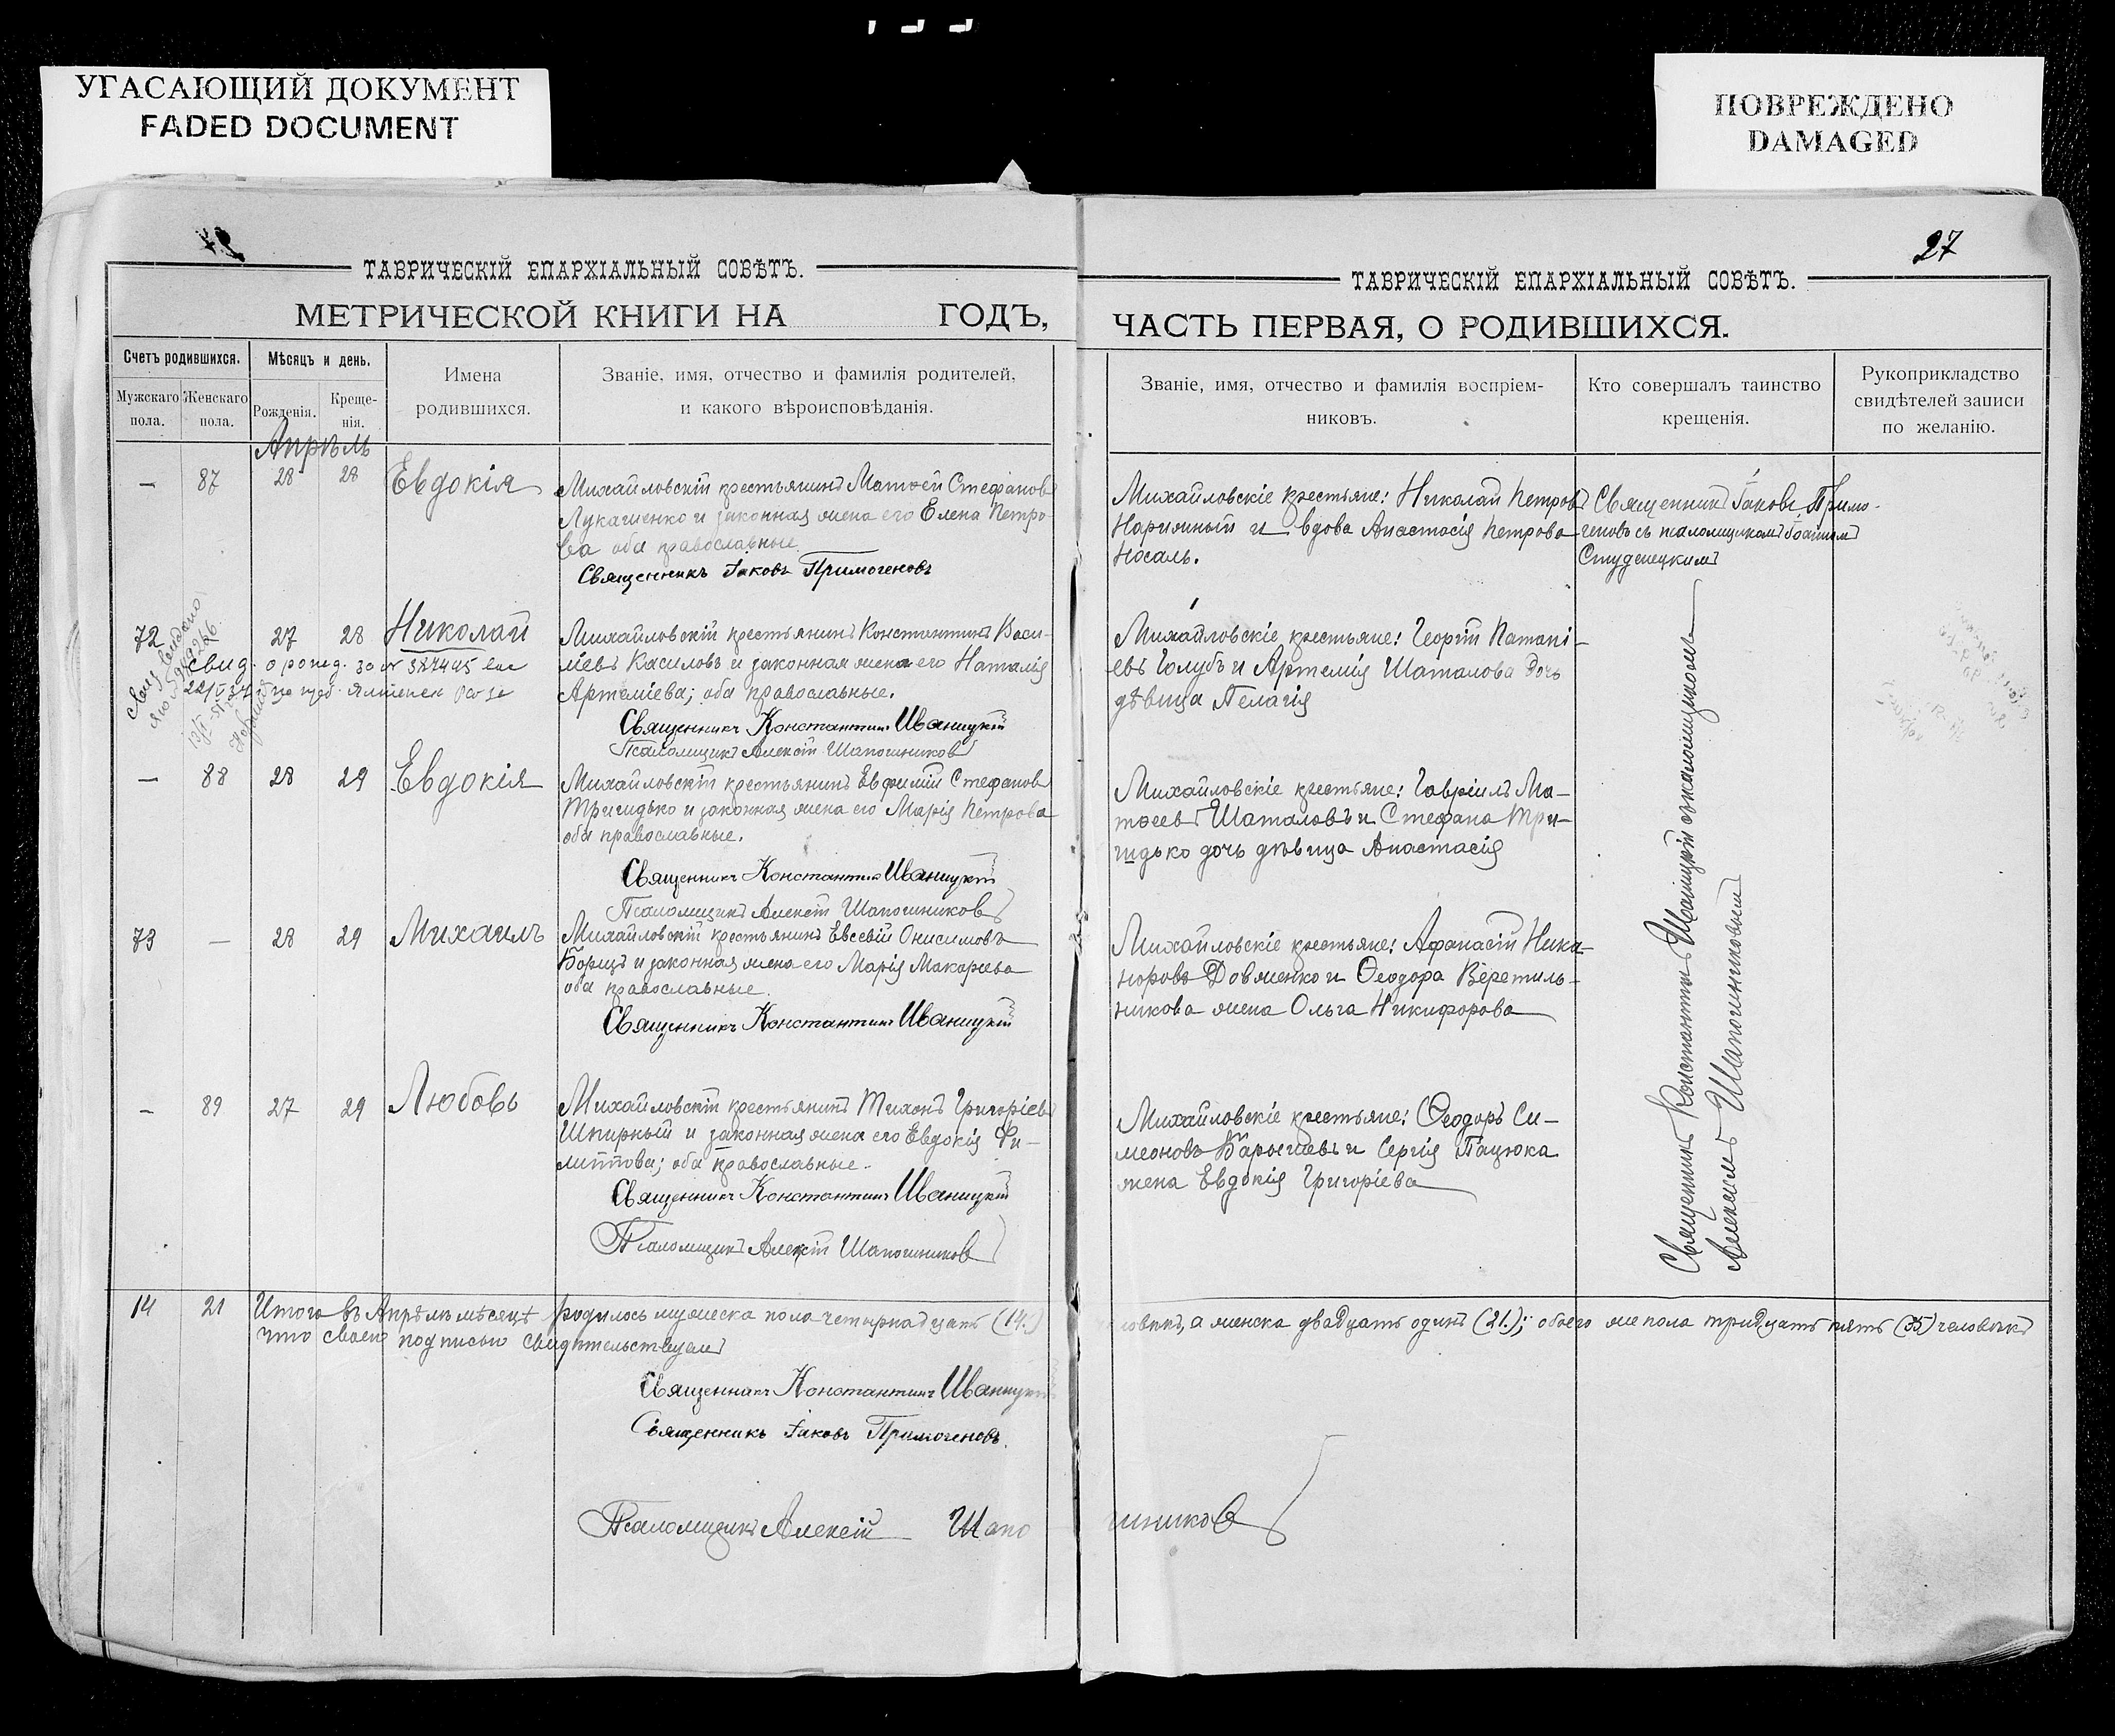 УГАСАЮЩИЙ ДОКУМЕНТ
FADED DOCUMENT
ПОВРЕЖДЕНО
DAMAGED
27
ТАВРИЧЕСКІЙ ЕПАРХІАЛЬНЫЙ СОВѢТЪ.
МЕТРИЧЕСКОЙ КНИГИ НА ГОДЪ,
ТАВРИЧЕСКІЙ ЕПАРХІАЛЬНЫЙ СОВѢТЪ.
ЧАСТЬ ПЕРВАЯ, О РОДИВШИХСЯ.
Счетъ родившихся.
Мужскаго пола.
Женскаго пола.
Мѣсяцъ и день.
Рожденія.
Креще-
нія.
Имена
родившихся.
Званіе, имя, отчество и фамилія родителей,
и какого вѣроисповѣданія.
Званіе, имя, отчество и фамилія воспріем-
никовъ.
Кто совершалъ таинство
крещенія.
Рукоприкладство
свидѣтелей записи
по желанію.
Апрѣль
— 87 28 28 Евдокія
Михайловскій крестьянинъ Матѳей Стефановъ
Лукашенко и законная жена его Елена Петро-
ва оба православные.
Священникъ Іаковъ Примогеновъ
Михайловскіе крестьяне: Николай Петровъ
Нарижный и вдова Анастасія Петрова
Носаль.
Священникъ Іаковъ Примо-
геновъ съ псаломщикомъ Іоанномъ
Студенецкимъ
72 27 28 Николай
свид. о рожд. за №
Михайловскій крестьянинъ Константинъ Васи-
ліевъ Касиловъ и законная жена его Наталія
Артеміева; оба православные.
Священникъ Константинъ Иваницкій
Псаломщикъ Алексій Шапошниковъ
Михайловскіе крестьяне: Георгій Патапі-
евъ Голубъ и Артемія Шаталова дочь
дѣвица Пелагія
— 88 28 29 Евдокія
Михайловскій крестьянинъ Евфимій Стефановъ
Тригидько и законная жена его Марія Петрова
оба православные.
Священникъ Константинъ Иваницкій
Псаломщикъ Алексій Шапошниковъ
Михайловскіе крестьяне: Гавріилъ Ма-
тѳеевъ Шаталовъ и Стефана Три-
гидько дочь дѣвица Анастасія
73 — 28 29 Михаилъ
Михайловскій крестьянинъ Евсевій Онисимовъ
Борщъ и законная жена его Марія Макарьева
оба православные.
Священникъ Константинъ Иваницкій
Михайловскіе крестьяне: Афанасій Ника-
норовъ Довженко и Ѳеодора Веретиль-
никова жена Ольга Никифорова
— 89 27 29 Любовь
Михайловскій крестьянинъ Тихонъ Григоріевъ
Шпирный и законная жена его Евдокія Фи-
липпова; оба православные.
Священникъ Константинъ Иваницкій
Псаломщикъ Алексій Шапошниковъ
Михайловскіе крестьяне: Ѳеодоръ Си-
меоновъ Барышевъ и Сергія Пацюка
жена Евдокія Григоріева
Священникъ Константинъ Иваницкій съ псаломщикомъ
Алексіемъ Шапошниковымъ
14 21 Итого въ Апрѣлѣ мѣсяцѣ родилось мужеска пола четырнадцать (14.) человѣкъ, а женска двадцать одинъ (21.); обоего же пола тридцать пять (35) человѣкъ
что своею подписью свидѣтельствуемъ
Священникъ Константинъ Иваницкій
Священникъ Іаковъ Примогеновъ.
Псаломщикъ Алексій Шапошниковъ